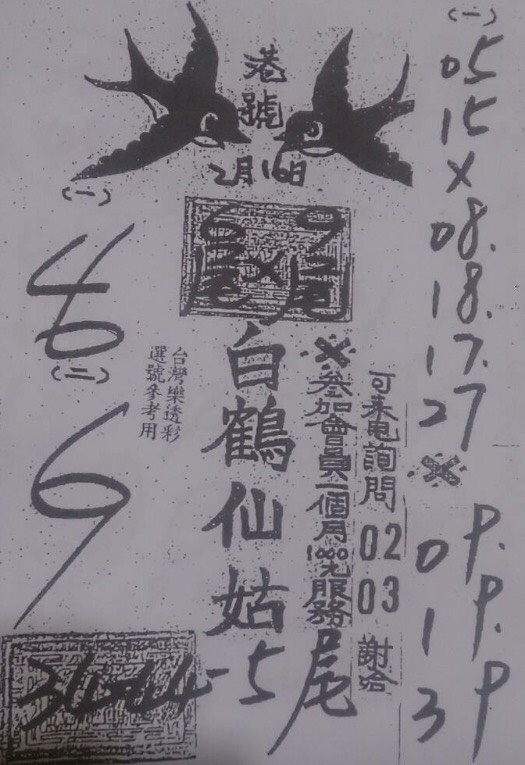 港號
2月16日
(一)
(一)
05
15
×
08.
18.
17.
27
※
09.
19.
39
尾×尾
46
(二)
6
台灣樂透彩
選號參考用
白鶴仙姑
※參加會員一個月1000元服務
可來电詢問 02 03 謝哈
34-44-5尾